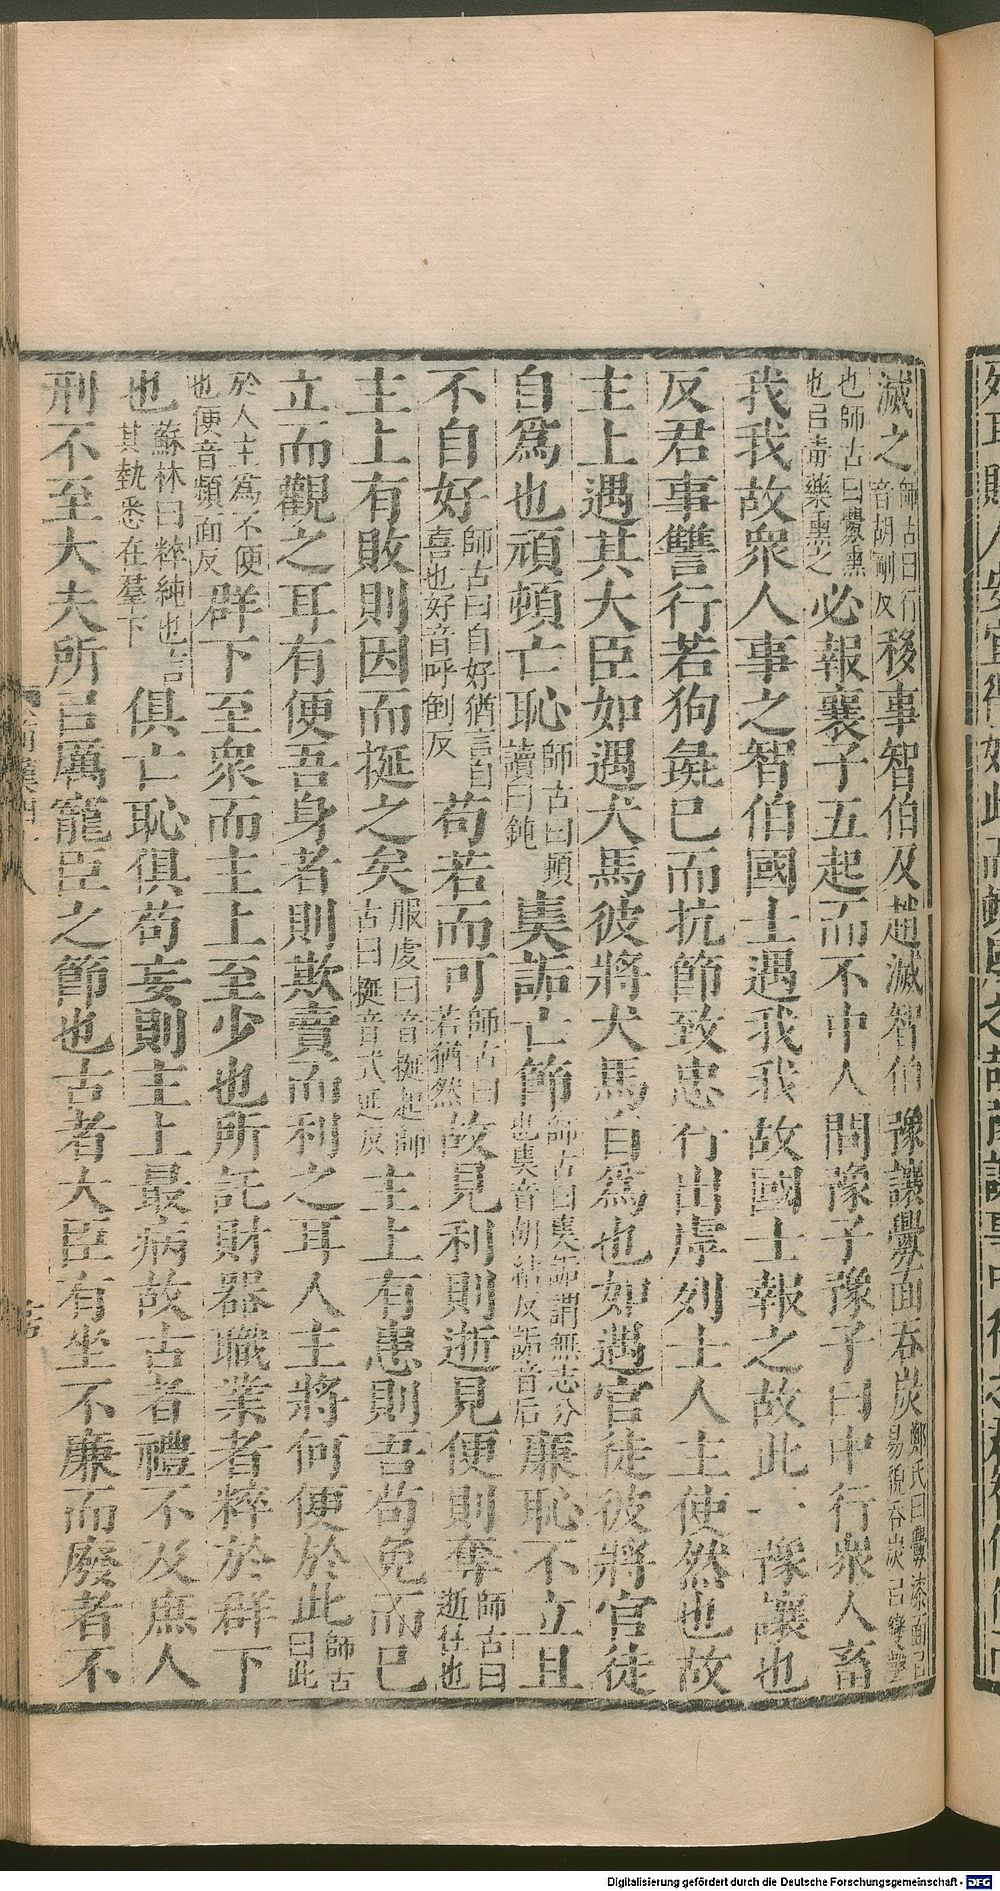 滅之師古曰行音胡剛反移事智伯及趙滅智伯豫讓釁面吞炭鄭氏曰釁漆面㠯易貌吞炭㠯變聲
也師古曰釁熏也㠯毒藥熏之必報襄子五起而不中人問豫子豫子曰中行衆人畜
我我故衆人事之智伯國士遇我我故國士報之故此一豫讓也
反君事讐行若狗彘已而抗節致忠行出虖列士人主使然也故
主上遇其大臣如遇犬馬彼將犬馬自爲也如遇官徒彼將官徒
自爲也頑頓亡恥師古曰頓讀曰鈍奊詬亡節師古曰奊詬謂無志分也奊音胡結反詬音后廉恥不立且
不自好師古曰自好猶言自喜也好音呼到反苟若而可師古曰若猶然故見利則逝見便則奪師古曰逝往也
主上有敗則因而挻之矣服虔曰音挻起師古曰挻音式延反主上有患則吾苟免而已
立而觀之耳有便吾身者則欺賣而利之耳人主將何便於此師古曰此
於人主爲不便也便音頻面反群下至衆而主上至少也所託財器職業者粹於群下
也蘇林曰粹純也言其執悉在羣下俱亡恥俱苟妄則主上最病故古者禮不及庶人
刑不至大夫所㠯厲寵臣之節也古者大臣有坐不廉而廢者不
Digitalisierung gefördert durch die Deutsche Forschungsgemeinschaft - DFG